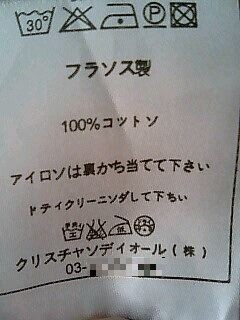 30°
P
フラソス製
100%コットソ
アイロソは裏かち当てて下さい
トティクリーニンダして下ちい
クリスチャソディオール(株)
03-